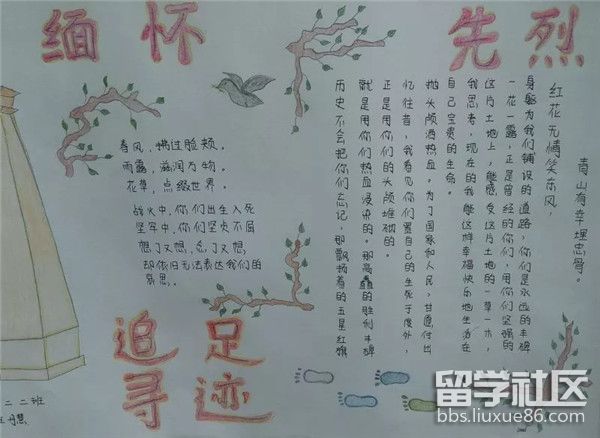 缅怀
先烈
春风，拂过脸颊。
雨露，滋润万物。
花草，点缀世界。
战火中，你们出生入死
坚牢中，你们坚贞不屈
想了又想，忘了又想，
却依旧无法表达我们的
哀思。
历史不会把你们忘记，那飘扬着的五星红旗
就是用你们热血浸染的。那高矗的胜利丰碑
正是用你们的头颅堆砌的。
忆往昔，我看见你们置自己的生死于度外，
抛头颅洒热血。为了国家和人民，甘愿付出
自己宝贵的生命。
我思考，现在的我能这样幸福快乐地生活在
这片土地上，能感受这片土地的一草一木，
一花一露，正是曾经的你们，用你们坚强的
身躯为我们铺设的道路，你们是永远的丰碑
红花无情笑东风，
青山有幸埋忠骨。
追寻
足迹
二二班
丹慧
留学社区
bbs.liuxue86.com